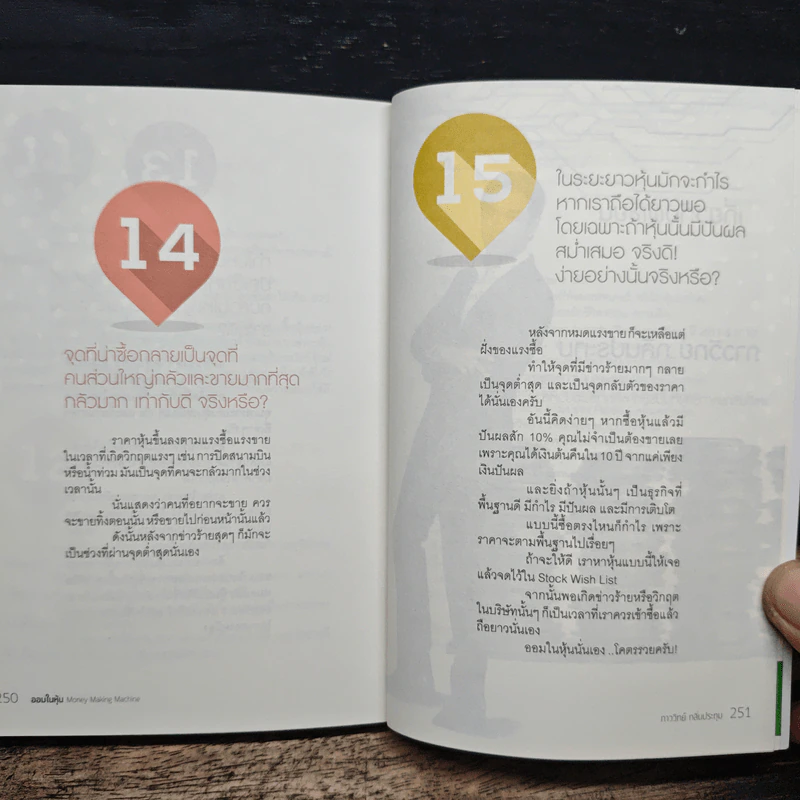 14
จุดที่น่าซื้อกลายเป็นจุดที่
คนส่วนใหญ่กลัวและขายมากที่สุด
กลัวมาก เท่ากับดี จริงหรือ?
ราคาหุ้นขึ้นลงตามแรงซื้อแรงขาย
ในเวลาที่เกิดวิกฤตแรงๆ เช่น การปิดสนามบิน
หรือน้ำท่วม มันเป็นจุดที่คนจะกลัวมากในช่วง
เวลานั้น
นั่นแสดงว่าคนที่อยากจะขาย ควร
จะขายทิ้งตอนนั้น หรือขายไปก่อนหน้านั้นแล้ว
ดังนั้นหลังจากข่าวร้ายสุดๆ ก็มักจะ
เป็นช่วงที่ผ่านจุดต่ำสุดนั่นเอง
250 ออมในหุ้น Money Making Machine
15
ในระยะยาวหุ้นมักจะกำไร
หากเราถือได้ยาวพอ
โดยเฉพาะถ้าหุ้นนั้นมีปันผล
สม่ำเสมอ จริงดิ!
ง่ายอย่างนั้นจริงหรือ?
หลังจากหมดแรงขาย ก็จะเหลือแต่
ฝั่งของแรงซื้อ
ทำให้จุดที่มีข่าวร้ายมากๆ กลาย
เป็นจุดต่ำสุด และเป็นจุดกลับตัวของราคา
ได้นั่นเองครับ
อันนี้คิดง่ายๆ หากซื้อหุ้นแล้วมี
ปันผลสัก 10% คุณไม่จำเป็นต้องขายเลย
เพราะคุณได้เงินต้นคืนใน 10 ปี จากแค่เพียง
เงินปันผล
และยิ่งถ้าหุ้นนั้นๆ เป็นธุรกิจที่
พื้นฐานดี มีกำไร มีปันผล และมีการเติบโต
แบบนี้ซื้อตรงไหนก็กำไร เพราะ
ราคาจะตามพื้นฐานไปเรื่อยๆ
ถ้าจะให้ดี เราหาหุ้นแบบนี้ให้เจอ
แล้วจดไว้ใน Stock Wish List
จากนั้นพอเกิดข่าวร้ายหรือวิกฤต
ในบริษัทนั้นๆ ก็เป็นเวลาที่เราควรเข้าซื้อแล้ว
ถือยาวนั่นเอง
ออมในหุ้นนั่นเอง ..โคตรรวยครับ!
ภาววิทย์ กลิ่นประทุม 251